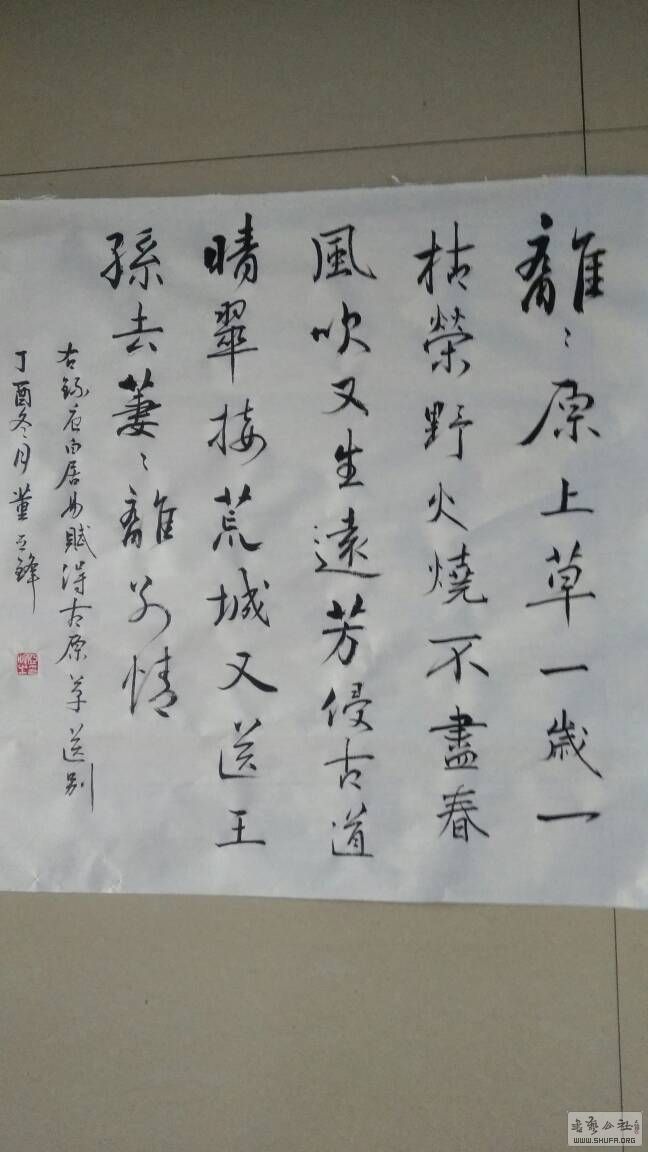 離〻原上草一歲一
枯榮野火燒不盡春
風吹又生遠芳侵古道
晴翠接荒城又送王
孫去萋〻離別情
右錄唐白居易賦得古原草送別
丁酉冬月 董鋒
書藝公社
WWW.SHUFA.ORG